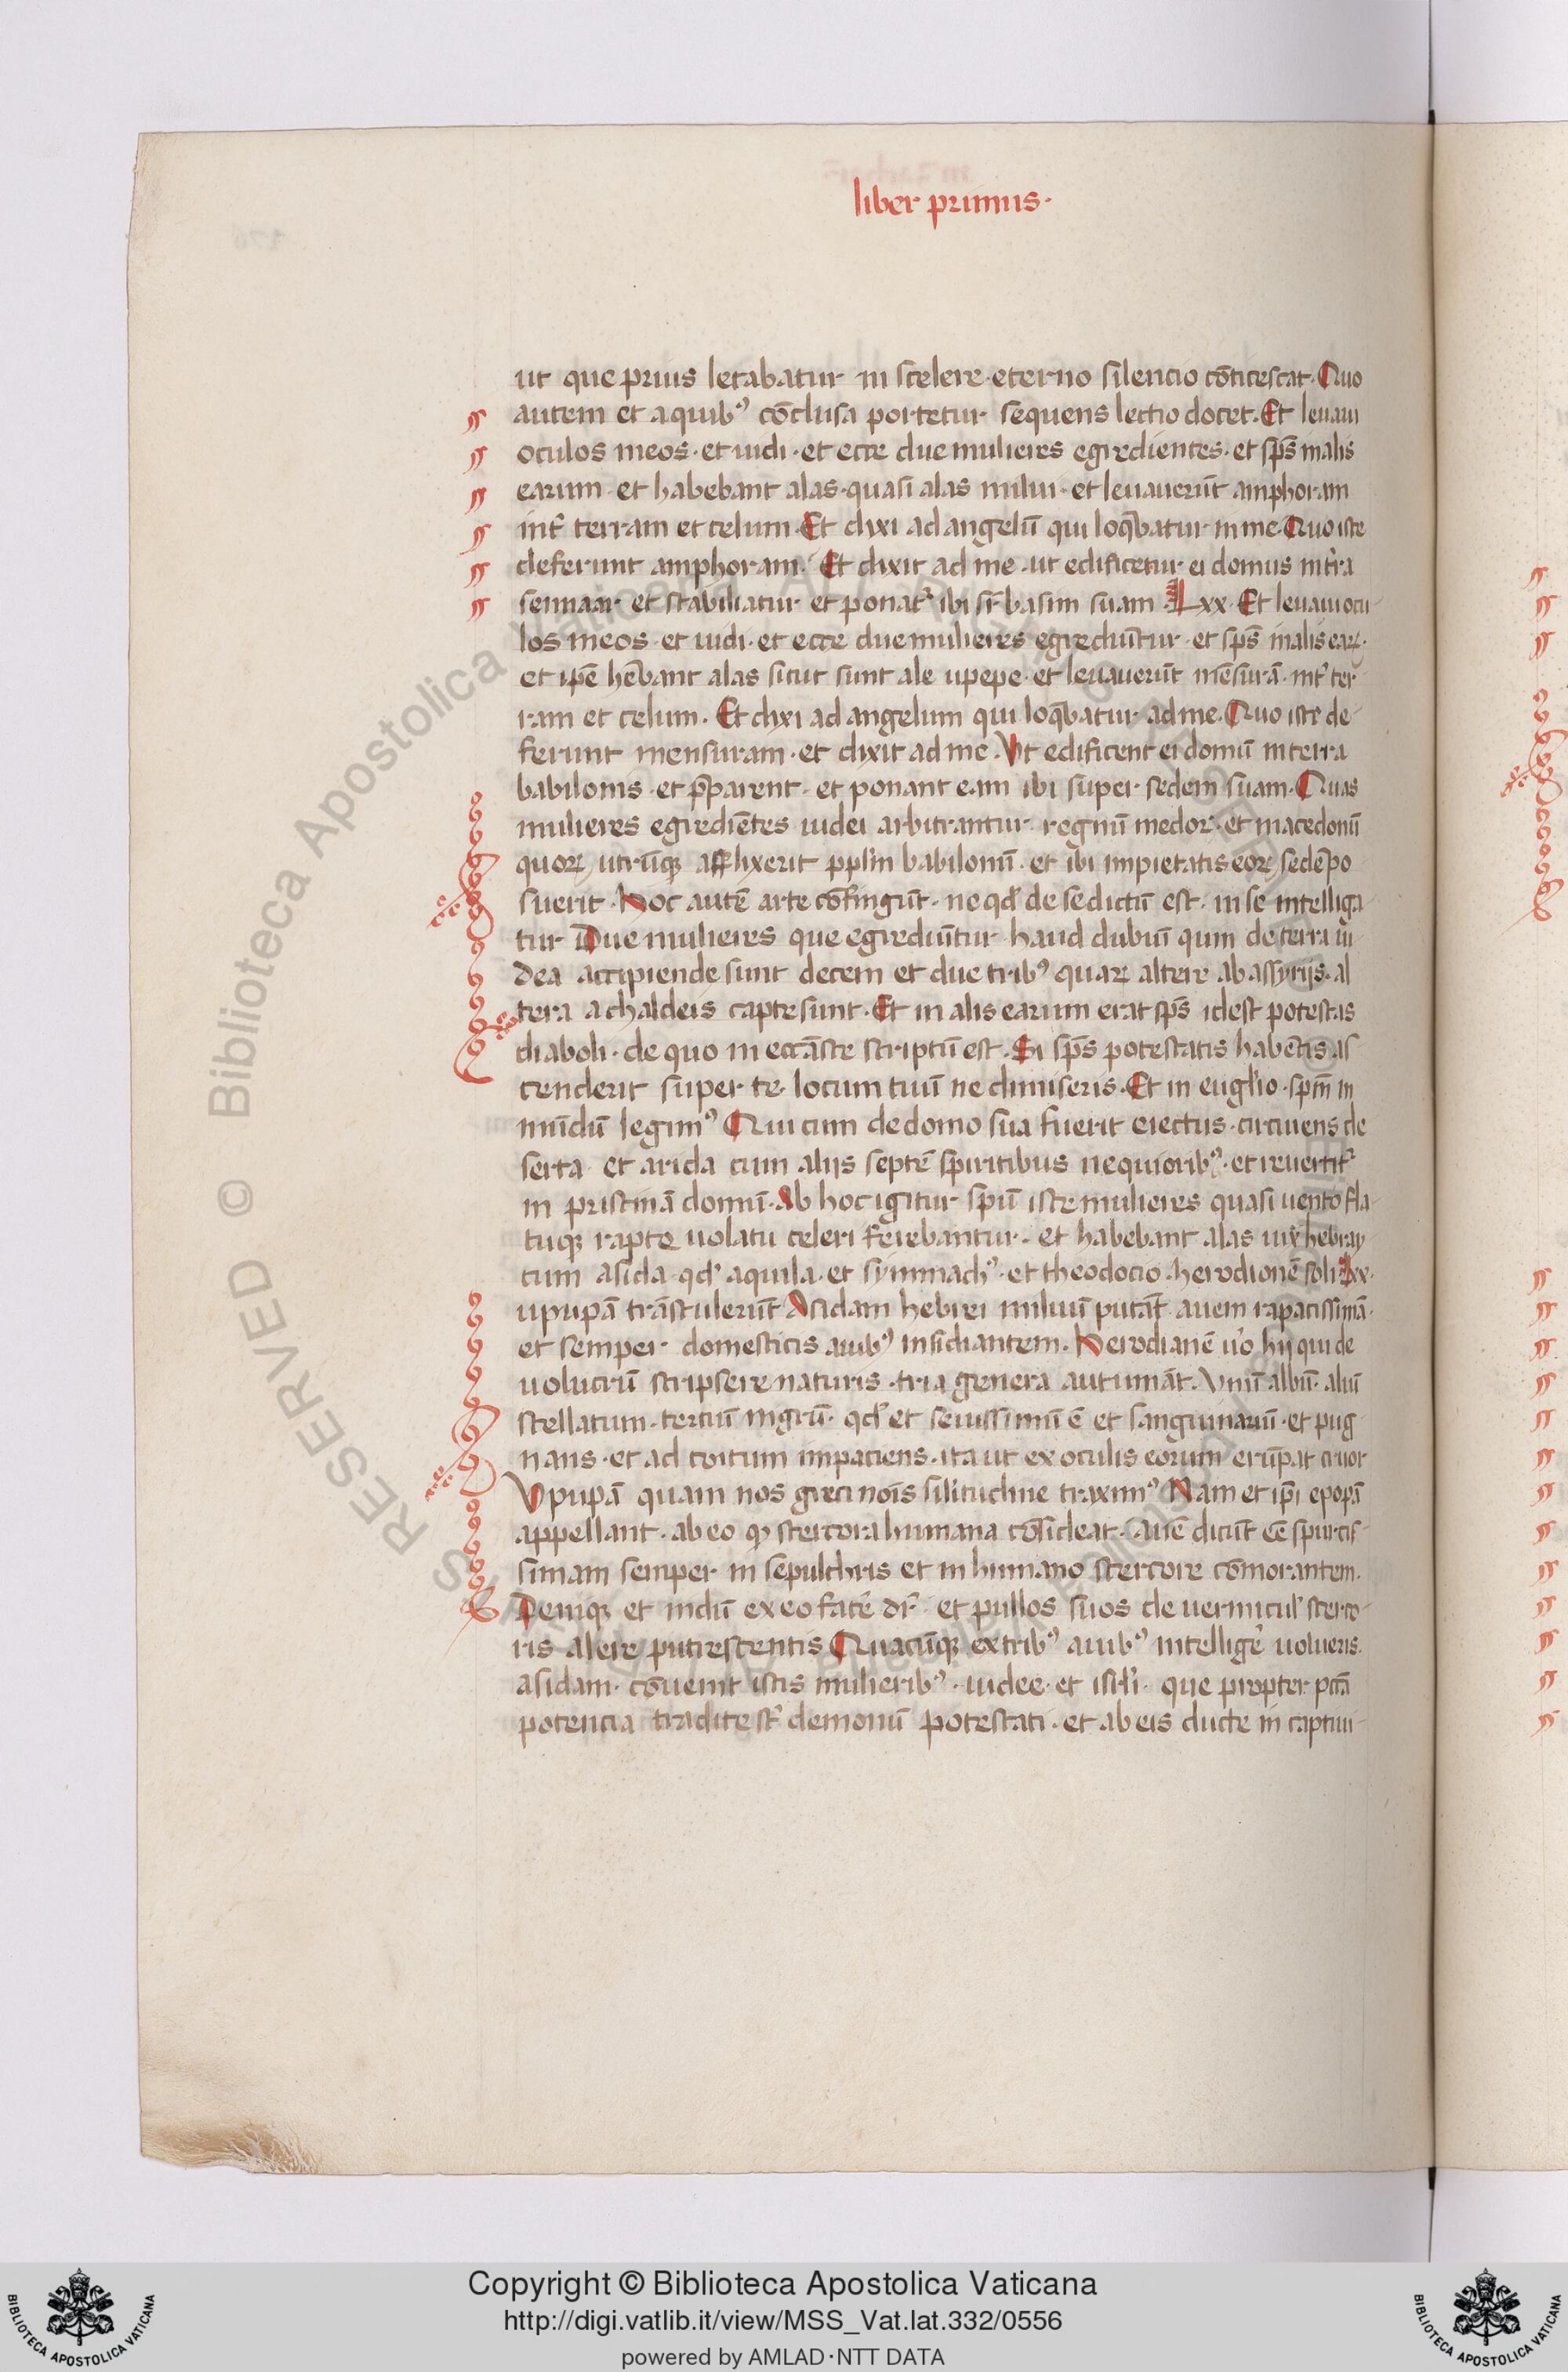 liber primus·
ut que prius letabatur in scelere·eterno silencio cōticescat·Quo
autem et a quibꝰ cōclusa portetur sequens lectio docet·Et leuaui
oculos meos·et uidi·et ecce due mulieres egredientes·et sp̄s in alis
earum·et habebant alas·quasi alas milui·et leuauerūt amphoram
int̉ terram et celum·Et dixi ad angelū qui loq̄batur in me·Quo iste
deferunt amphoram·Et dixit ad me·ut edificetur ei domus in tr̄ra
sennaar et stabiliatur et ponat̉ ibi sr̄ basim suam·Lxx·Et leuaui ocu
los meos·et uidi·et ecce due mulieres egrediūtur·et sp̄s in alis eaꝝ·
et ip̄e hēbant alas sicut sunt ale upepe·et leuauerūt mēsurā·int̉ ter
ram et celum·Et dixi ad angelum qui loq̄batur ad me·Quo iste de
ferunt mensuram·et dixit ad me·Vt edificent ei domū in terra
babilonis·et p̄parent·et ponant eam ibi super sedem suam·Quas
mulieres egrediētes iudei arbitrantur regnū medoꝝ·et macedonū
quoꝝ utrūqꝫ afflixerit pplm̄ babiloniū·et ibi impietatis eoꝝ sedē po
suerit·Hoc autē arte cōfingūt·ne qd̉ de se dictū est·in se intelliga
tur Due mulieres que egrediūtur haud dubiū quin de terra iu
dea accipiende sunt decem et due tribꝰ quaꝝ altere ab assyrijs·al
tera a chaldeis capte sunt·Et in alis earum erat sp̄s idest potestas
diaboli·de quo in eccāste scriptū est·Si sp̄s potestatis habētis as
cenderit super te·locum tuū ne dimiseris·Et in euglio·spm̄ in
mūdū legimꝰ Qui cum de domo sua fuerit eiectus·circuens de
serta et arida cum alijs septē spiritibus nequioribꝰ·et reuertit̉
in pristinā domū·Ab hoc igitur spū iste mulieres quasi uento fla
tuqꝫ rapte uolatu celeri ferebantur·et habebant alas iux hebray
cum asida·qd̉ aquila·et symmachꝰ·et theodocio·herodionē soli·Lxx·
upupā trāstulerūt Asidam hebrei miluū putāt auem rapacissimā·
et semper domesticis auibꝰ insidiantem·Herodianē ủo hij qui de
uolucrū scripsere naturis·tria genera autumāt·Vnū albū·aliū
stellatum·terciū nigrū·qd̉ et seuissimū ē et sanguinariū·et pug
nans·et ad coitum impaciens·ita ut ex oculis eorum erūpat cruor
Vpupā quam nos greci noīs silitudine traximꝰ Nam et ip̄i epopā
appellant·ab eo ꝙ stercora humana cōsideat·Auē dicūt eē spurcis
simam semper in sepulchris et in humano stercore cōmorantem·
Deniqꝫ et nidū ex eo facē dr̄·et pullos suos de uermicul̉ sterco
ris alere putrescentis Quacūqꝫ ex tribꝰ auibꝰ intelligẻ uolueris·
asidam·cōuenit istis mulieribꝰ·iudee·et isrl̉i·que propter pcā
potencia tradite st̉ demonū potestati·et ab eis ducte in captiui
Copyright © Biblioteca Apostolica Vaticana
http://digi.vatlib.it/view/MSS_Vat.lat.332/0556
powered by AMLAD·NTT DATA